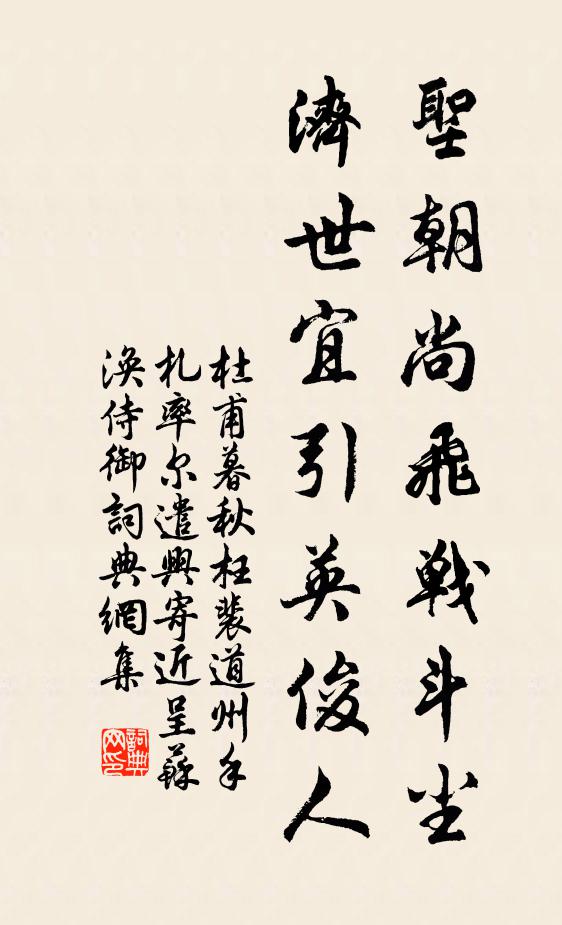 聖朝尚飛戰斗尘
濟世宜引英俊人
杜甫暮秋枉裴道州手
札率尔遣興寄近呈蘇
渙侍御詞典網集
詞典
网印